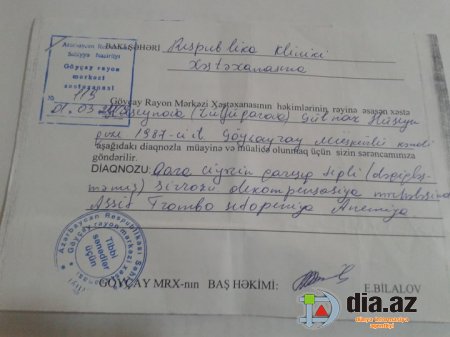 Azərbaycan Respublikası
Səhiyyə Nazirliyi
Göyçay rayon
mərkəzi
xəstəxanası
№ 113
01.03.
BAKI ŞƏHƏRİ Respublika Kliniki
Xəstəxanasına
Göyçay Rayon Mərkəzi Xəstəxanasının həkimlərinin rəyinə əsasən xəstə
Hüseynova Gülnar Hüseyn
qızı 1987-ci il Göyçay ray kəndi
aşağıdakı diaqnozla müayinə və müalicə olunmaq üçün sizin sərəncamınıza
göndərilir.
DİAQNOZU: Qara ciyərin qarışıq tipli
sirrozu dekompensasiya mərhələsində
Assit Trombositopeniya Anemiya
Azərbaycan Respublikası
Göyçay rayon mərkəzi
Tibbi
sənədlər
üçün
GÖYÇAY MRX-nın BAŞ HƏKİMİ: E.BİLALOV
dia.az
dünya informasiya
agentliyi